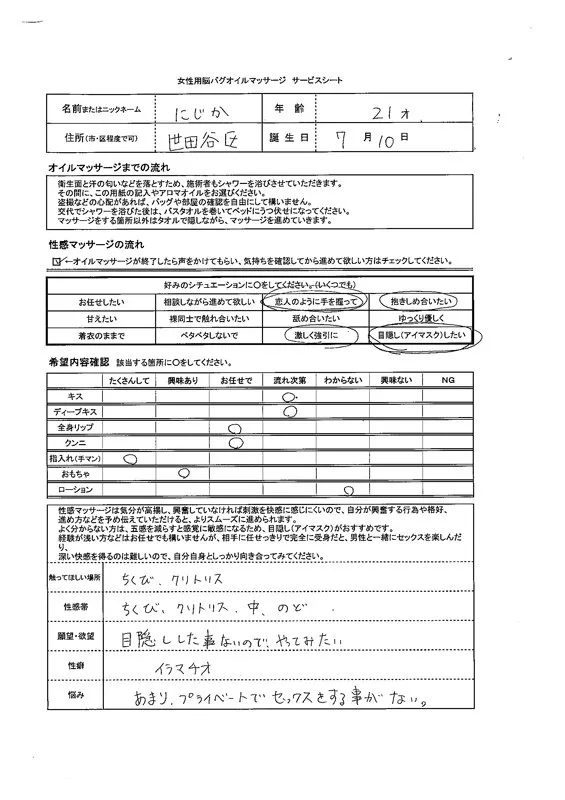 女性用脳バグオイルマッサージ サービスシート
名前またはニックネーム にじか 年齢 21才
住所(市・区程度で可) 世田谷区 誕生日 7月10日
オイルマッサージまでの流れ
衛生面と汗の匂いなどを落とすため、施術者もシャワーを浴びさせていただきます。
その間に、この用紙の記入やアロマオイルをお選びください。
盗撮などの心配があれば、バッグや部屋の確認を自由にして構いません。
交代でシャワーを浴びた後は、バスタオルを巻いてベッドにうつ伏せになってください。
マッサージをする箇所以外はタオルで隠しながら、マッサージを進めていきます。
性感マッサージの流れ
☑←オイルマッサージが終了したら声をかけてもらい、気持ちを確認してから進めて欲しい方はチェックしてください。
好みのシチュエーションに○をしてください。(いくつでも)
お任せしたい 相談しながら進めて欲しい 恋人のように手を握って 抱きしめ合いたい
甘えたい 裸同士で触れ合いたい 舐め合いたい ゆっくり優しく
着衣のままで ベタベタしないで 激しく強引に 目隠し(アイマスク)したい
希望内容確認 該当する箇所に○をしてください。
たくさんして 興味あり お任せで 流れ次第 わからない 興味ない NG
キス ○
ディープキス ○
全身リップ ○
クンニ ○
指入れ(手マン) ○
おもちゃ ○
ローション ○
性感マッサージは気分が高揚し、興奮していなければ刺激を快感に感じにくいので、自分が興奮する行為や格好、
進め方などを予め伝えていただけると、よりスムーズに進められます。
よく分からない方は、五感を減らすと感覚に敏感になるため、目隠し(アイマスク)がおすすめです。
経験が浅い方などはお任せでも構いませんが、相手に任せっきりで完全に受身だと、男性と一緒にセックスを楽しんだ
り、
深い快感を得るのは難しいので、自分自身としっかり向き合ってみてください。
触ってほしい場所 ちくび、クリトリス
性感帯 ちくび、クリトリス、中、のど
願望・欲望 目隠ししした事ないので、やってみたい
性癖 イラマチオ
悩み あまり、プライベートでセックスをする事がない。